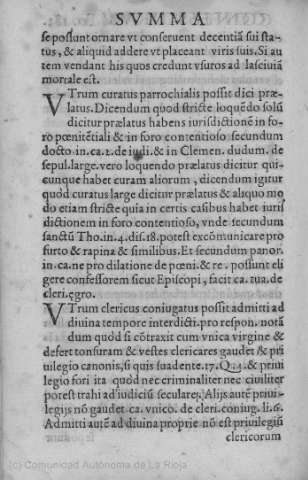 SVMMA
se possunt ornare vt conseruent decentiā sui sta-
tus, & aliquid addere vt placeant viris suis. Si au
tem vendant his quos credunt vsuros ad lasciuiā
mortale est.
VTrum curatus parrochialis possit dici præ-
latus. Dicendum quod stricte loquēdo solū
dicitur prælatus habens iurisdictionē in fo-
ro pœnitētiali & in foro contentioso secundum
docto. in. ca. 2. de iudi. & in Clemen. dudum. de
sepul. large. vero loquendo prælatus dicitur qui-
cunque habet curam aliorum, dicendum igitur
quód curatus large dicitur prælatus & aliquo mo
do etiam stricte quia in certis casibus habet iuris
dictionem in foro contentioso, vnde secundum
sanctū Tho. in. 4. dis. 18. potest excōmunicare pro
furto & rapina & similibus. Et secundum panor.
in. ca. ne pro dilatione de pœni. & re. possunt eli
gere confessorem sicut Episcopi, facit ca. tua. de
cleri. ęgro.
VTrum clericus coniugatus possit admitti ad
diuina tempore interdicti. pro respon. notā
dum quód si cōtraxit cum vnica virgine &
defert tonsuram & vestes clericares gaudet & pri
uilegio canonis, si quis suadente. 17. Q. 4. & priui
legio fori ita quód nec criminaliter nec ciuiliter
potest trahi ad iudiciū seculare. Alijs autē priui-
legijs nō gaudet. ca. vnico. de cleri. coniug. li. 6.
Admitti autē ad diuina proprie nō est priuilegiū
clericorum
(c) Comunidad Autónoma de La Rioja